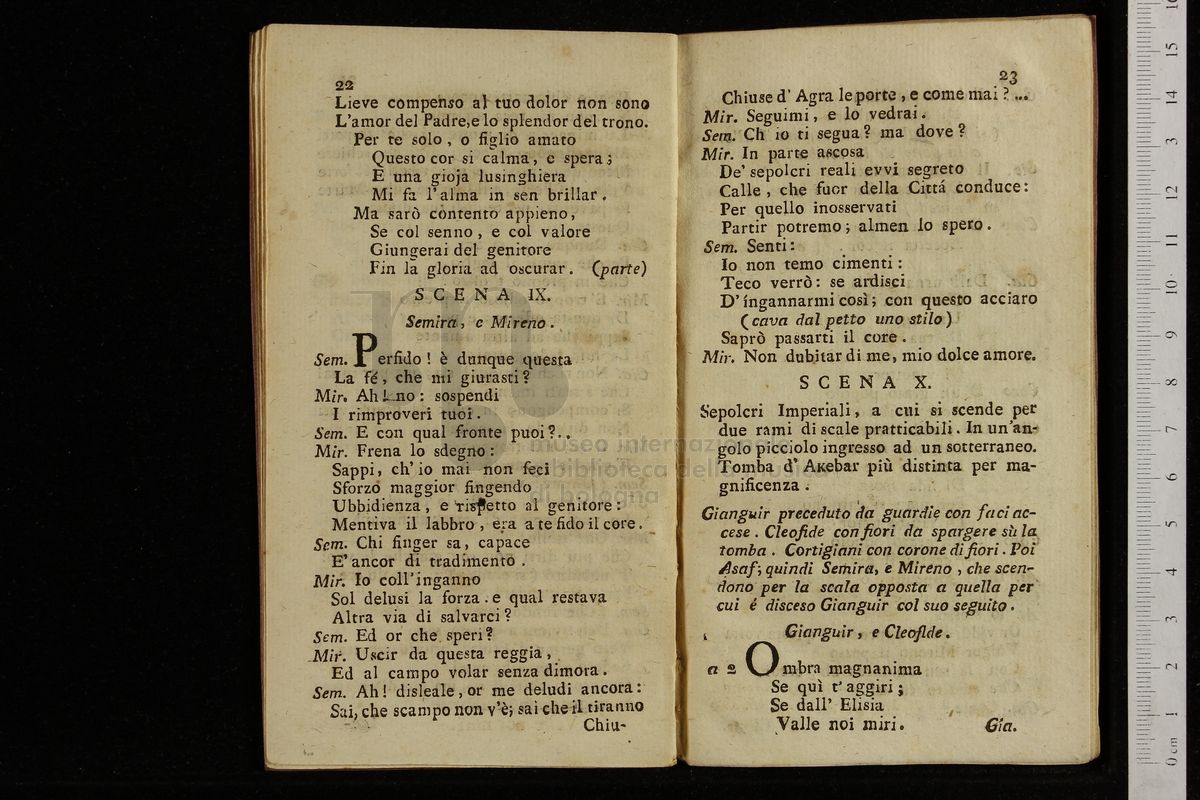 22
Lieve compenso al tuo dolor non sono
L'amor del Padre,e lo splendor del trono.
Per te solo, o figlio amato
Questo cor si calma, e spera;
E una gioja lusinghiera
Mi fa l'alma in sen brillar.
Ma sarò contento appieno,
Se col senno, e col valore
Giungerai del genitore
Fin la gloria ad oscurar. (parte)
SCENA IX.
Semira, e Mireno.
Sem. Perfido! è dunque questa
La fé, che mi giurasti?
Mir. Ah! no: sospendi
I rimproveri tuoi.
Sem. E con qual fronte puoi?..
Mir. Frena lo sdegno:
Sappi, ch'io mai non feci
Sforzo maggior fingendo
Ubbidienza, e rispetto al genitore:
Mentiva il labbro, era a te fido il core.
Sem. Chi finger sa, capace
E' ancor di tradimento.
Mir. Io coll'inganno
Sol delusi la forza. e qual restava
Altra via di salvarci?
Sem. Ed or che speri?
Mir. Uscir da questa reggia,
Ed al campo volar senza dimora.
Sem. Ah! disleale, or me deludi ancora:
Sai, che scampo non v'è; sai che il tiranno
Chiu-
23
Chiuse d' Agra le porte, e come mai?...
Mir. Seguimi, e lo vedrai.
Sem. Ch io ti segua? ma dove?
Mir. In parte ascosa
De' sepolcri reali evvi segreto
Calle, che fuor della Cittá conduce:
Per quello inosservati
Partir potremo; almen lo spero.
Sem. Senti:
Io non temo cimenti:
Teco verrò: se ardisci
D'ingannarmi così; con questo acciaro
(cava dal petto uno stilo)
Saprò passarti il core.
Mir. Non dubitar di me, mio dolce amore.
SCENA X.
Sepolcri Imperiali, a cui si scende per
due rami di scale pratticabili. In un'an-
golo picciolo ingresso ad un sotterraneo.
Tomba d' Akebar più distinta per ma-
gnificenza.
Gianguir preceduto da guardie con faci ac-
cese. Cleofide con fiori da spargere sù la
tomba. Cortigiani con corone di fiori. Poi
Asaf; quindi Semira, e Mireno, che scen-
dono per la scala opposta a quella per
cui é disceso Gianguir col suo seguito.
Gianguir, e Cleofide.
a 2 Ombra magnanima
Se quì t'aggiri;
Se dall' Elisia
Valle noi miri.
Gia.
museo internazionale
biblioteca della musica
di bologna
0 cm 1 2 3 4 5 6 7 8 9 10 11 12 13 14 15 16